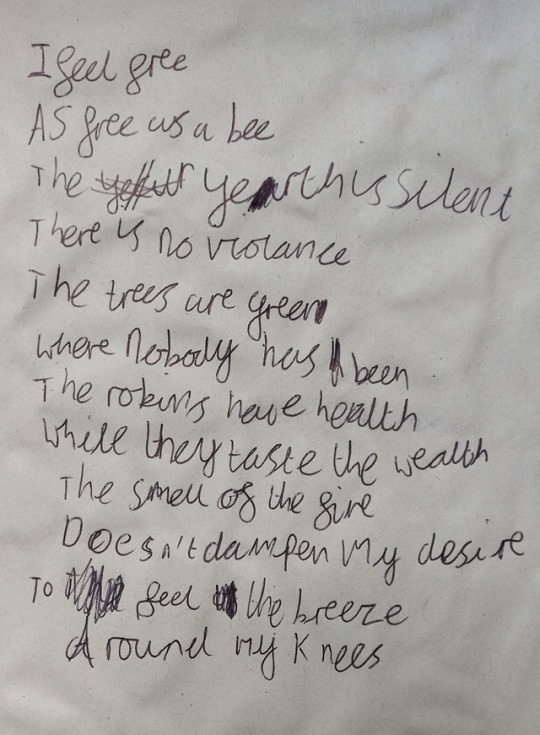 I feel free
AS free as a bee
The yearth is Silent
There is no violance
The trees are green
where Nobody has been
The robins have health
while they taste the wealth
The smell of the fire
Doesn't dampen My desire
To feel the breeze
Around my Knees